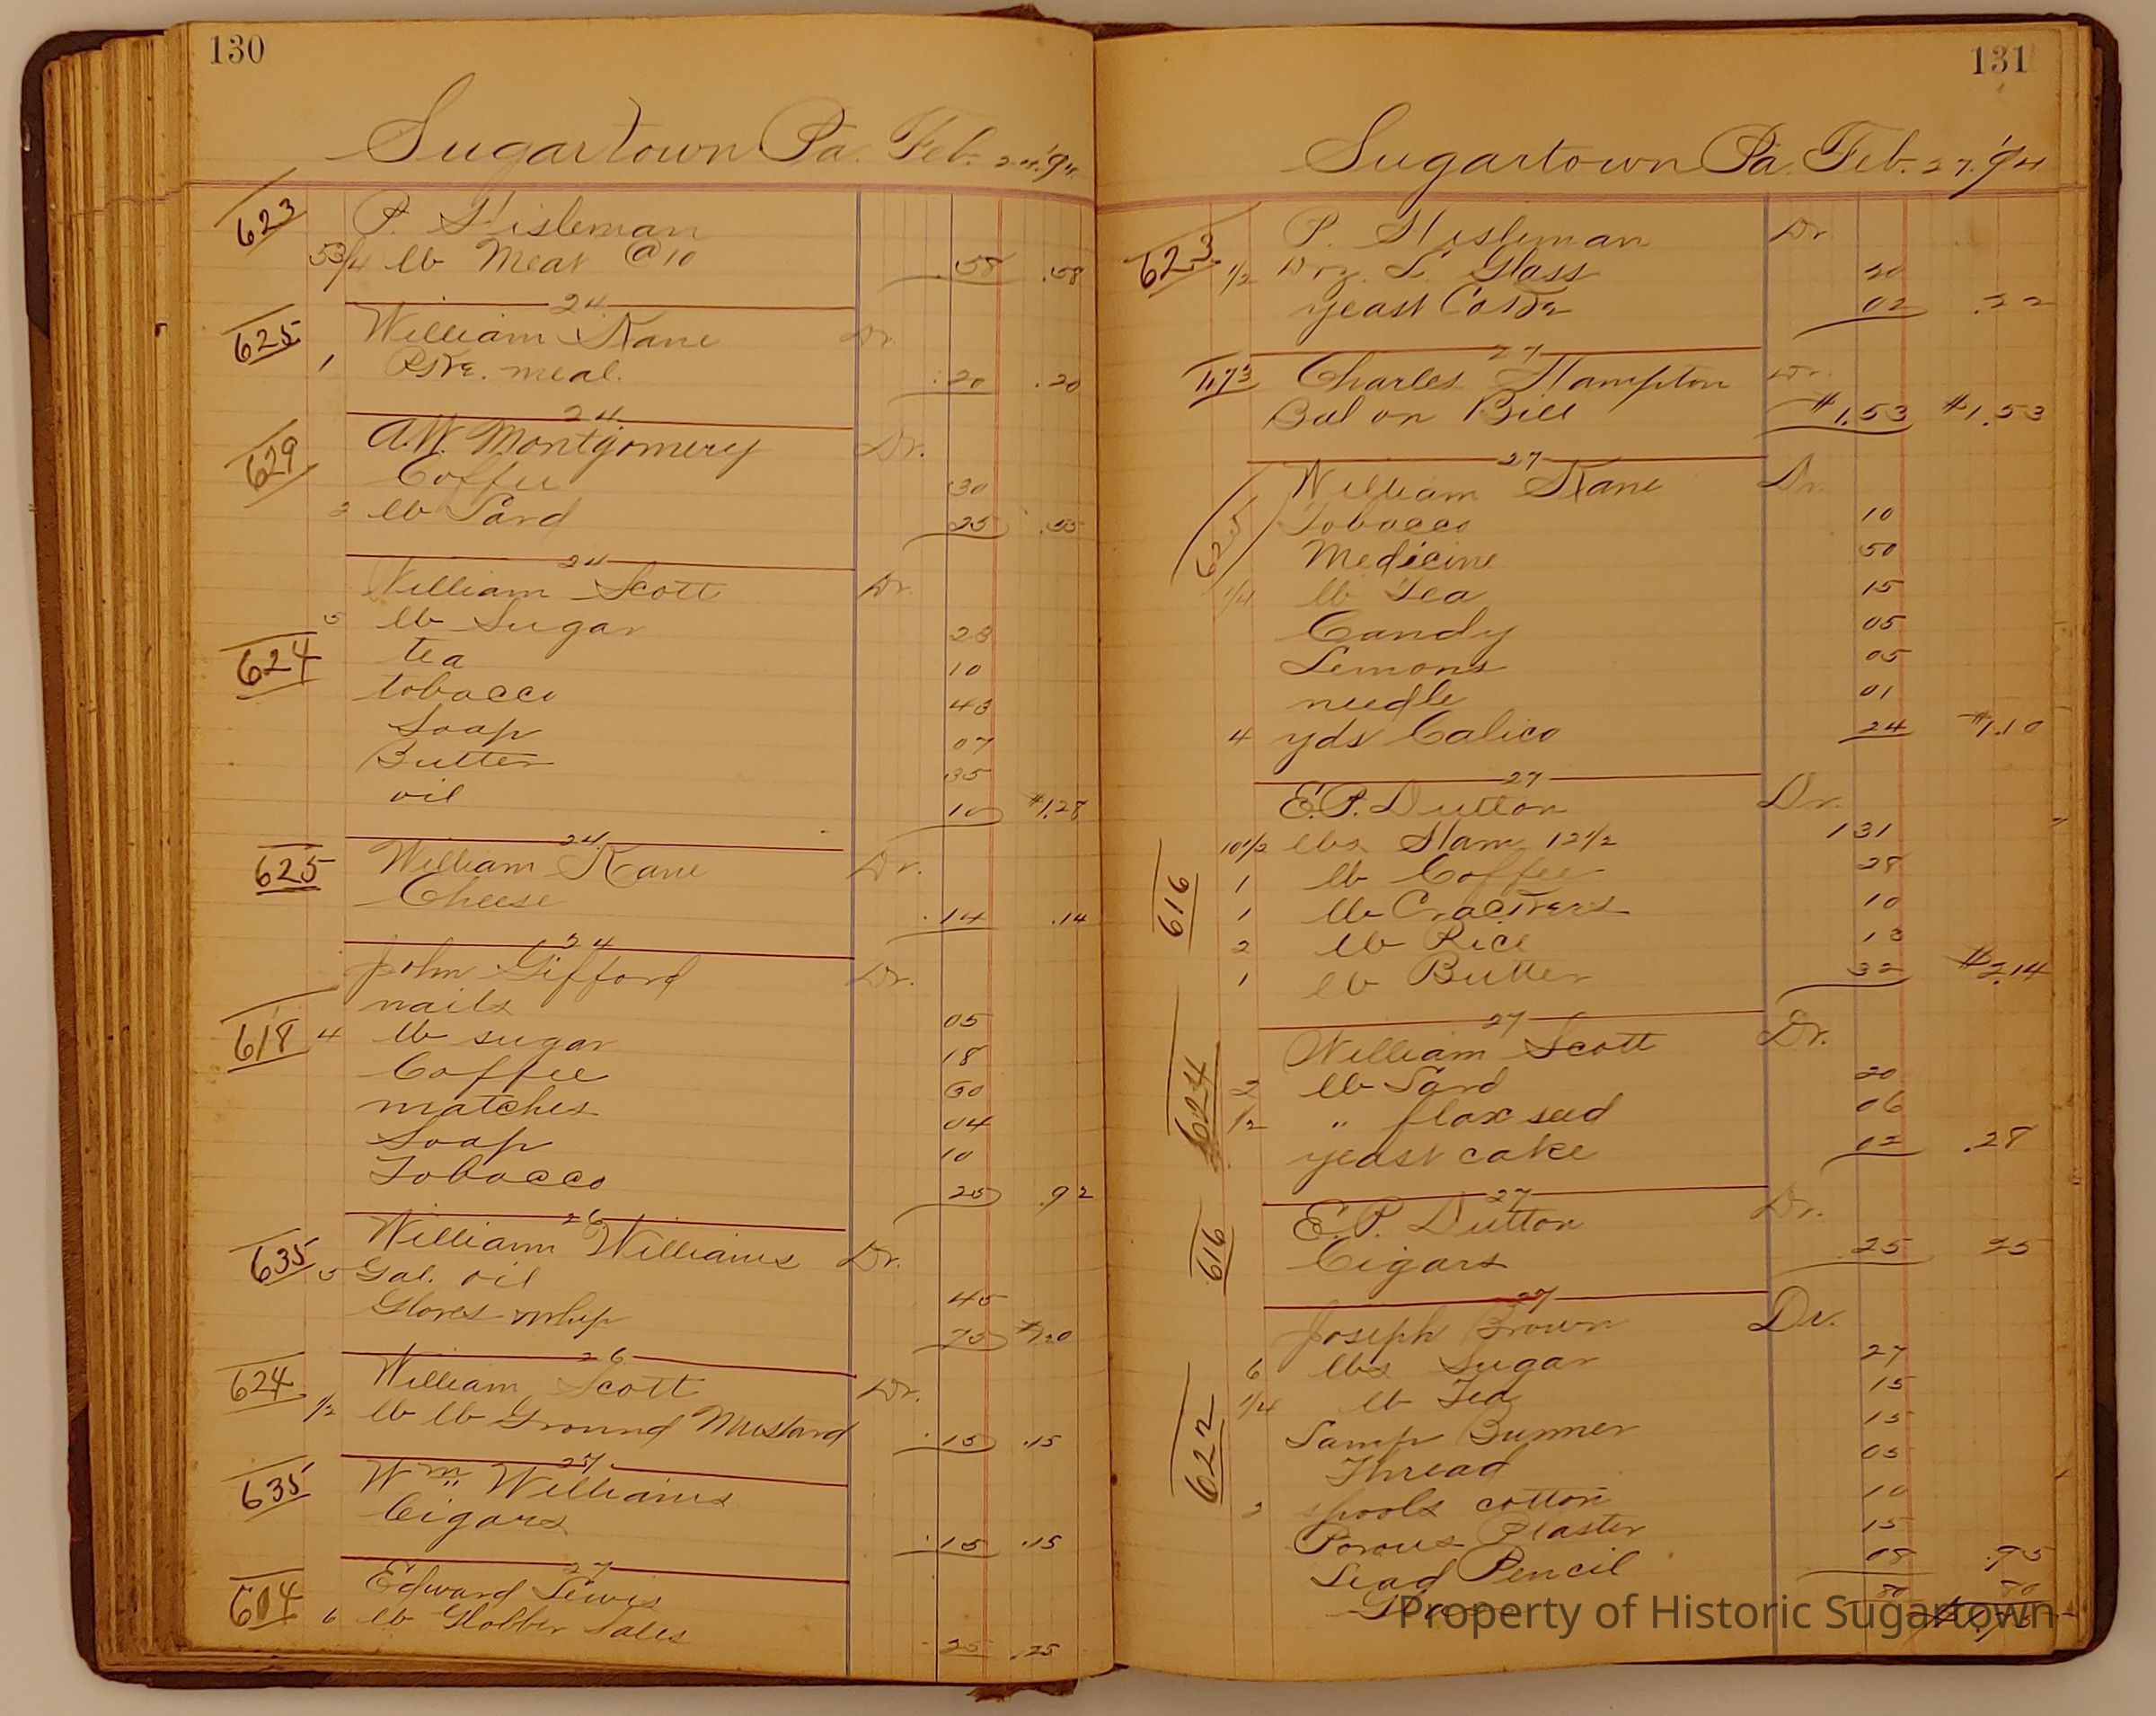 130
Sugartown Pa. Feb. 24, '94.
623 P. Hisleman
5 3/4 lb Meat @ 10 .58 .58
24
625 William Kane Dr.
1 Pkg. meal. .20 .20
24
629 A.W. Montgomery Dr.
Coffee 30
3 lb Lard 25 .55
24
William Scott Dr.
5 lb Sugar 23
624 tea 10
tobacco 43
Soap 07
Butter 35
oil 10 $1.28
24
625 William Kane Dr.
Cheese .14 .14
24
John Gifford Dr.
nails 05
618 4 lb sugar 18
Coffee 30
matches 04
Soap 10
Tobacco 25 .92
26
William Williams Dr.
635 5 Gal. oil 45
Gloves whip 75 $1.20
26
624 William Scott Dr.
1/2 lb lb Ground Mustard .15 .15
27
635 Wm Williams
Cigars .15 .15
27
604 Edward Lewis
6 lb Glober Salts 25 .25
131
Sugartown Pa. Feb. 27. '94
623 P. Hisleman Dr.
1/2 Doz. L. Glass 20
yeast Cake 02 .22
27
1173 Charles Hampton Dr.
Bal on Bill $1.53 $1.53
27
625 William Kane Dr.
Tobacco 10
Medicine 50
1/4 lb Tea 15
Candy 05
Lemons 05
needle 01
4 yds Calico 24 $1.10
27
E.P. Dutton Dr.
10 1/2 lbs Ham 12 1/2 131
616 1 lb Coffee 28
1 lb Crackers 10
2 lb Rice 13
1 lb Butter 32 $2.14
27
William Scott Dr.
624 2 lb Lard 20
1/2 " flax seed 06
yeast cake 02 .28
27
616 E.P. Dutton Dr.
Cigars 25 25
27
Joseph Brown Dr.
6 lbs Sugar 27
622 1/4 lb Tea 15
Lamp Burner 15
Thread 05
2 spools cotton 10
Porous Plaster 15
Lead Pencil 08 .95
80 80
Property of Historic Sugartown